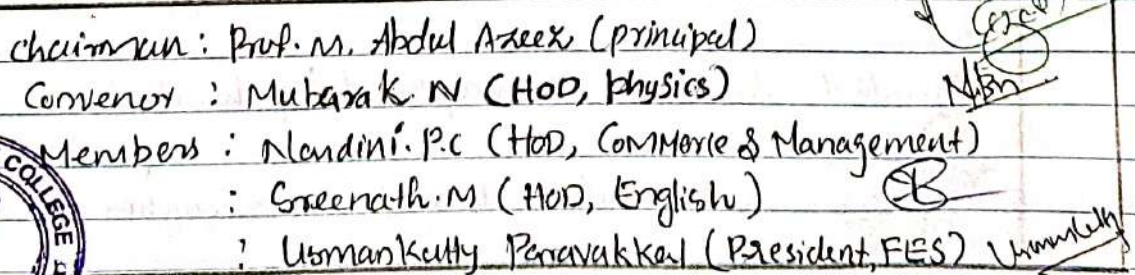 Chairman : Prof. M. Abdul Azeez (principal)
Convenor : Mubarak. N (HOD, physics)
Members : Nandini. P.C (HOD, Commerce & Management)
: Sreenath. M (HOD, English)
: Usmankutty Paravakkal (President, FES)
COLLEGE